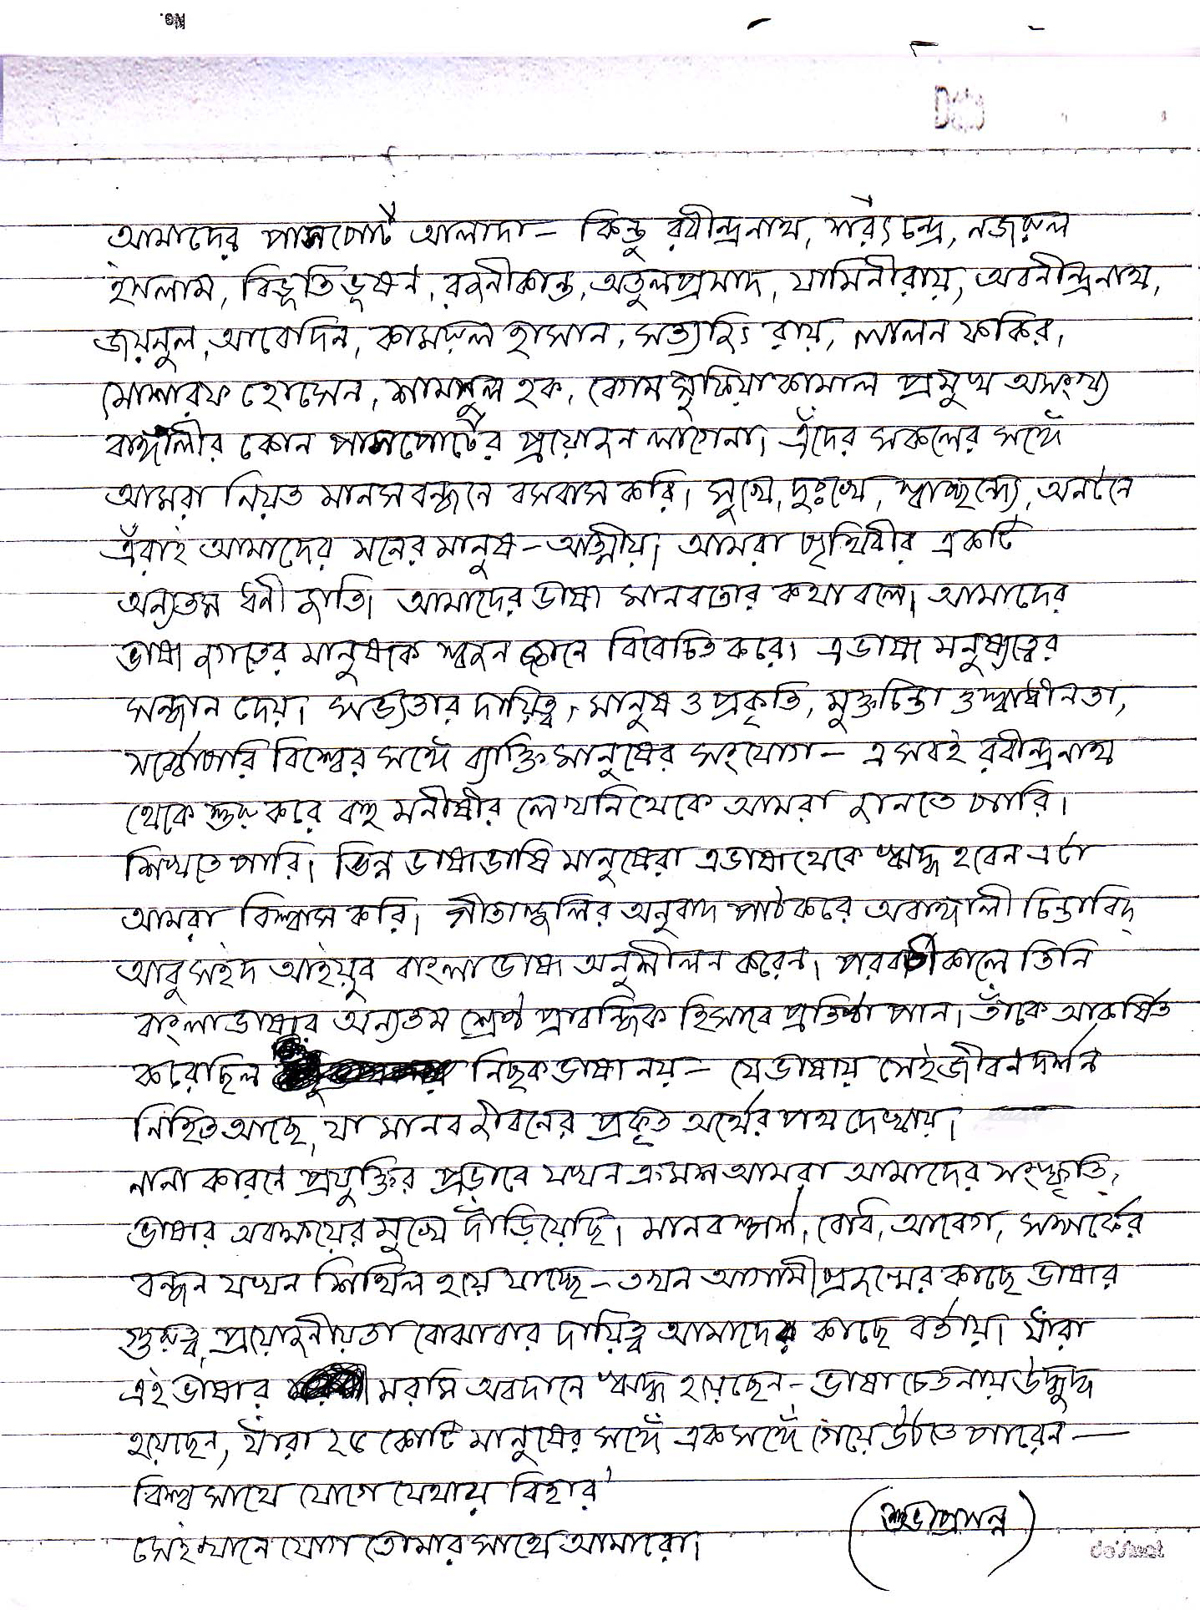 No.
আমাদের পাসপোর্ট আলাদা – কিন্তু রবীন্দ্রনাথ, শরৎচন্দ্র, নজরুল
ইসলাম, বিভূতিভূষণ, রজনীকান্ত, অতুলপ্রসাদ, যামিনীরায়, অবনীন্দ্রনাথ,
জয়নুল, আবেদিন, কামরুল হাসান, সত্যজিৎ রায়, লালন ফকির,
মোশারফ হোসেন, শামশুল হক, বেগম সুফিয়া কামাল প্রমুখ অসংখ্য
বাঙ্গালীর কোন পাসপোর্টের প্রয়োজন লাগেনা। এঁদের সকলের সঙ্গে
আমরা নিয়ত মানসবন্ধনে বসবাস করি। সুখে, দুঃখে, স্বাচ্ছন্দ্যে, অনটনে
এঁরাই আমাদের মনের মানুষ – আত্মীয়। আমরা পৃথিবীর একটি
অন্যতম ধনী জাতি। আমাদের ভাষা মানবতার কথা বলে। আমাদের
ভাষা জগতের মানুষকে স্বজন জ্ঞানে বিবেচিত করে। এ ভাষা মনুষ্যত্বের
সন্ধান দেয়। সভ্যতার দায়িত্ব, মানুষ ও প্রকৃতি, মুক্তচিন্তা ও স্বাধীনতা,
সর্ব্বোপরি বিশ্বের সঙ্গে ব্যাক্তি মানুষের সংযোগ – এ সবই রবীন্দ্রনাথ
থেকে শুরু করে বহু মনীষীর লেখনি থেকে আমরা জানতে পারি।
শিখতে পারি। ভিন্ন ভাষাভাষি মানুষেরা এভাষা থেকে ঋদ্ধ হবেন এটা
আমরা বিশ্বাস করি। গীতাঞ্জলির অনুবাদ পাঠ করে অবাঙ্গালী চিন্তাবিদ্
আবু সইদ আইয়ুব বাংলা ভাষা অনুশীলন করেন। পরবর্তী কালে তিনি
বাংলাভাষার অন্যতম শ্রেষ্ঠ প্রাবন্ধিক হিসাবে প্রতিষ্ঠা পান। তাঁকে আকর্ষিত
করেছিল নিছক ভাষা নয় – যে ভাষায় সেই জীবন দর্শন
নিহিত আছে, যা মানব জীবনের প্রকৃত অর্থের পথ দেখায়।
নানা কারনে প্রযুক্তির প্রভাবে যখন ক্রমশ আমরা আমাদের সংস্কৃতি,
ভাষার অবক্ষয়ের মুখে দাঁড়িয়েছি। মানব স্পর্শ, বোধি, আবেগ, সম্পর্কের
বন্ধন যখন শিথিল হয়ে যাচ্ছে – তখন আগামী প্রজন্মের কাছে ভাষার
গুরুত্ব, প্রয়োজনীয়তা বোঝাবার দায়িত্ব আমাদের কাছে বর্তায়। যাঁরা
এই ভাষার মরমি অবদানে ঋদ্ধ হয়েছেন – ভাষা চেতনায় উদ্বুদ্ধ
হয়েছেন, যাঁরা ২৫ কোটি মানুষের সঙ্গে একসঙ্গে গেয়ে উঠতে পারেন —
বিশ্ব সাথে যোগে যেথায় বিহার'
সেইখানে যোগ তোমার সাথে আমারো।
(শুভাপ্রসন্ন)